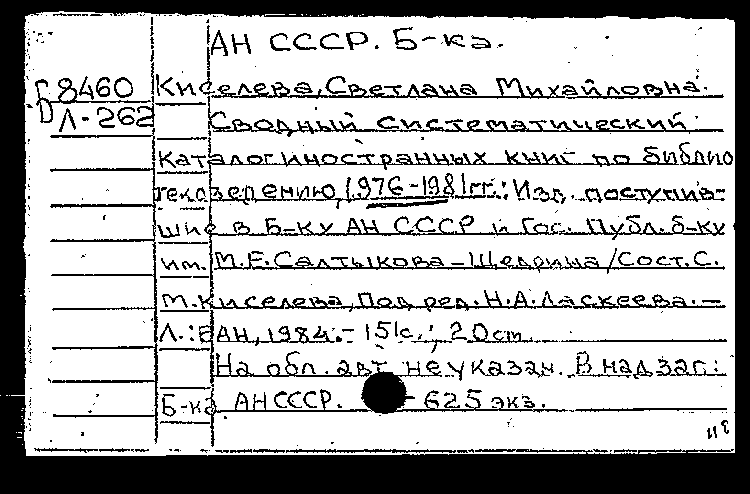 АН СССР. Б-ка.
G 8460 Киселева, Светлана Михайловна.
D Л-262 Сводный систематический
каталог иностранных книг по библио
тековедению, 1976-1981гг.: Изд. поступив-
шие в Б-ку АН СССР и Гос. Публ. б-ку
им. М.Е. Салтыкова-Щедрина / Сост. С.
М. Киселева, Под ред. Н.А. Ласкеева.-
Л.: БАН, 1984.- 151с.; 20 cm
На обл. авт не указан. В надзаг:
Б-ка АН СССР. - 625 экз.